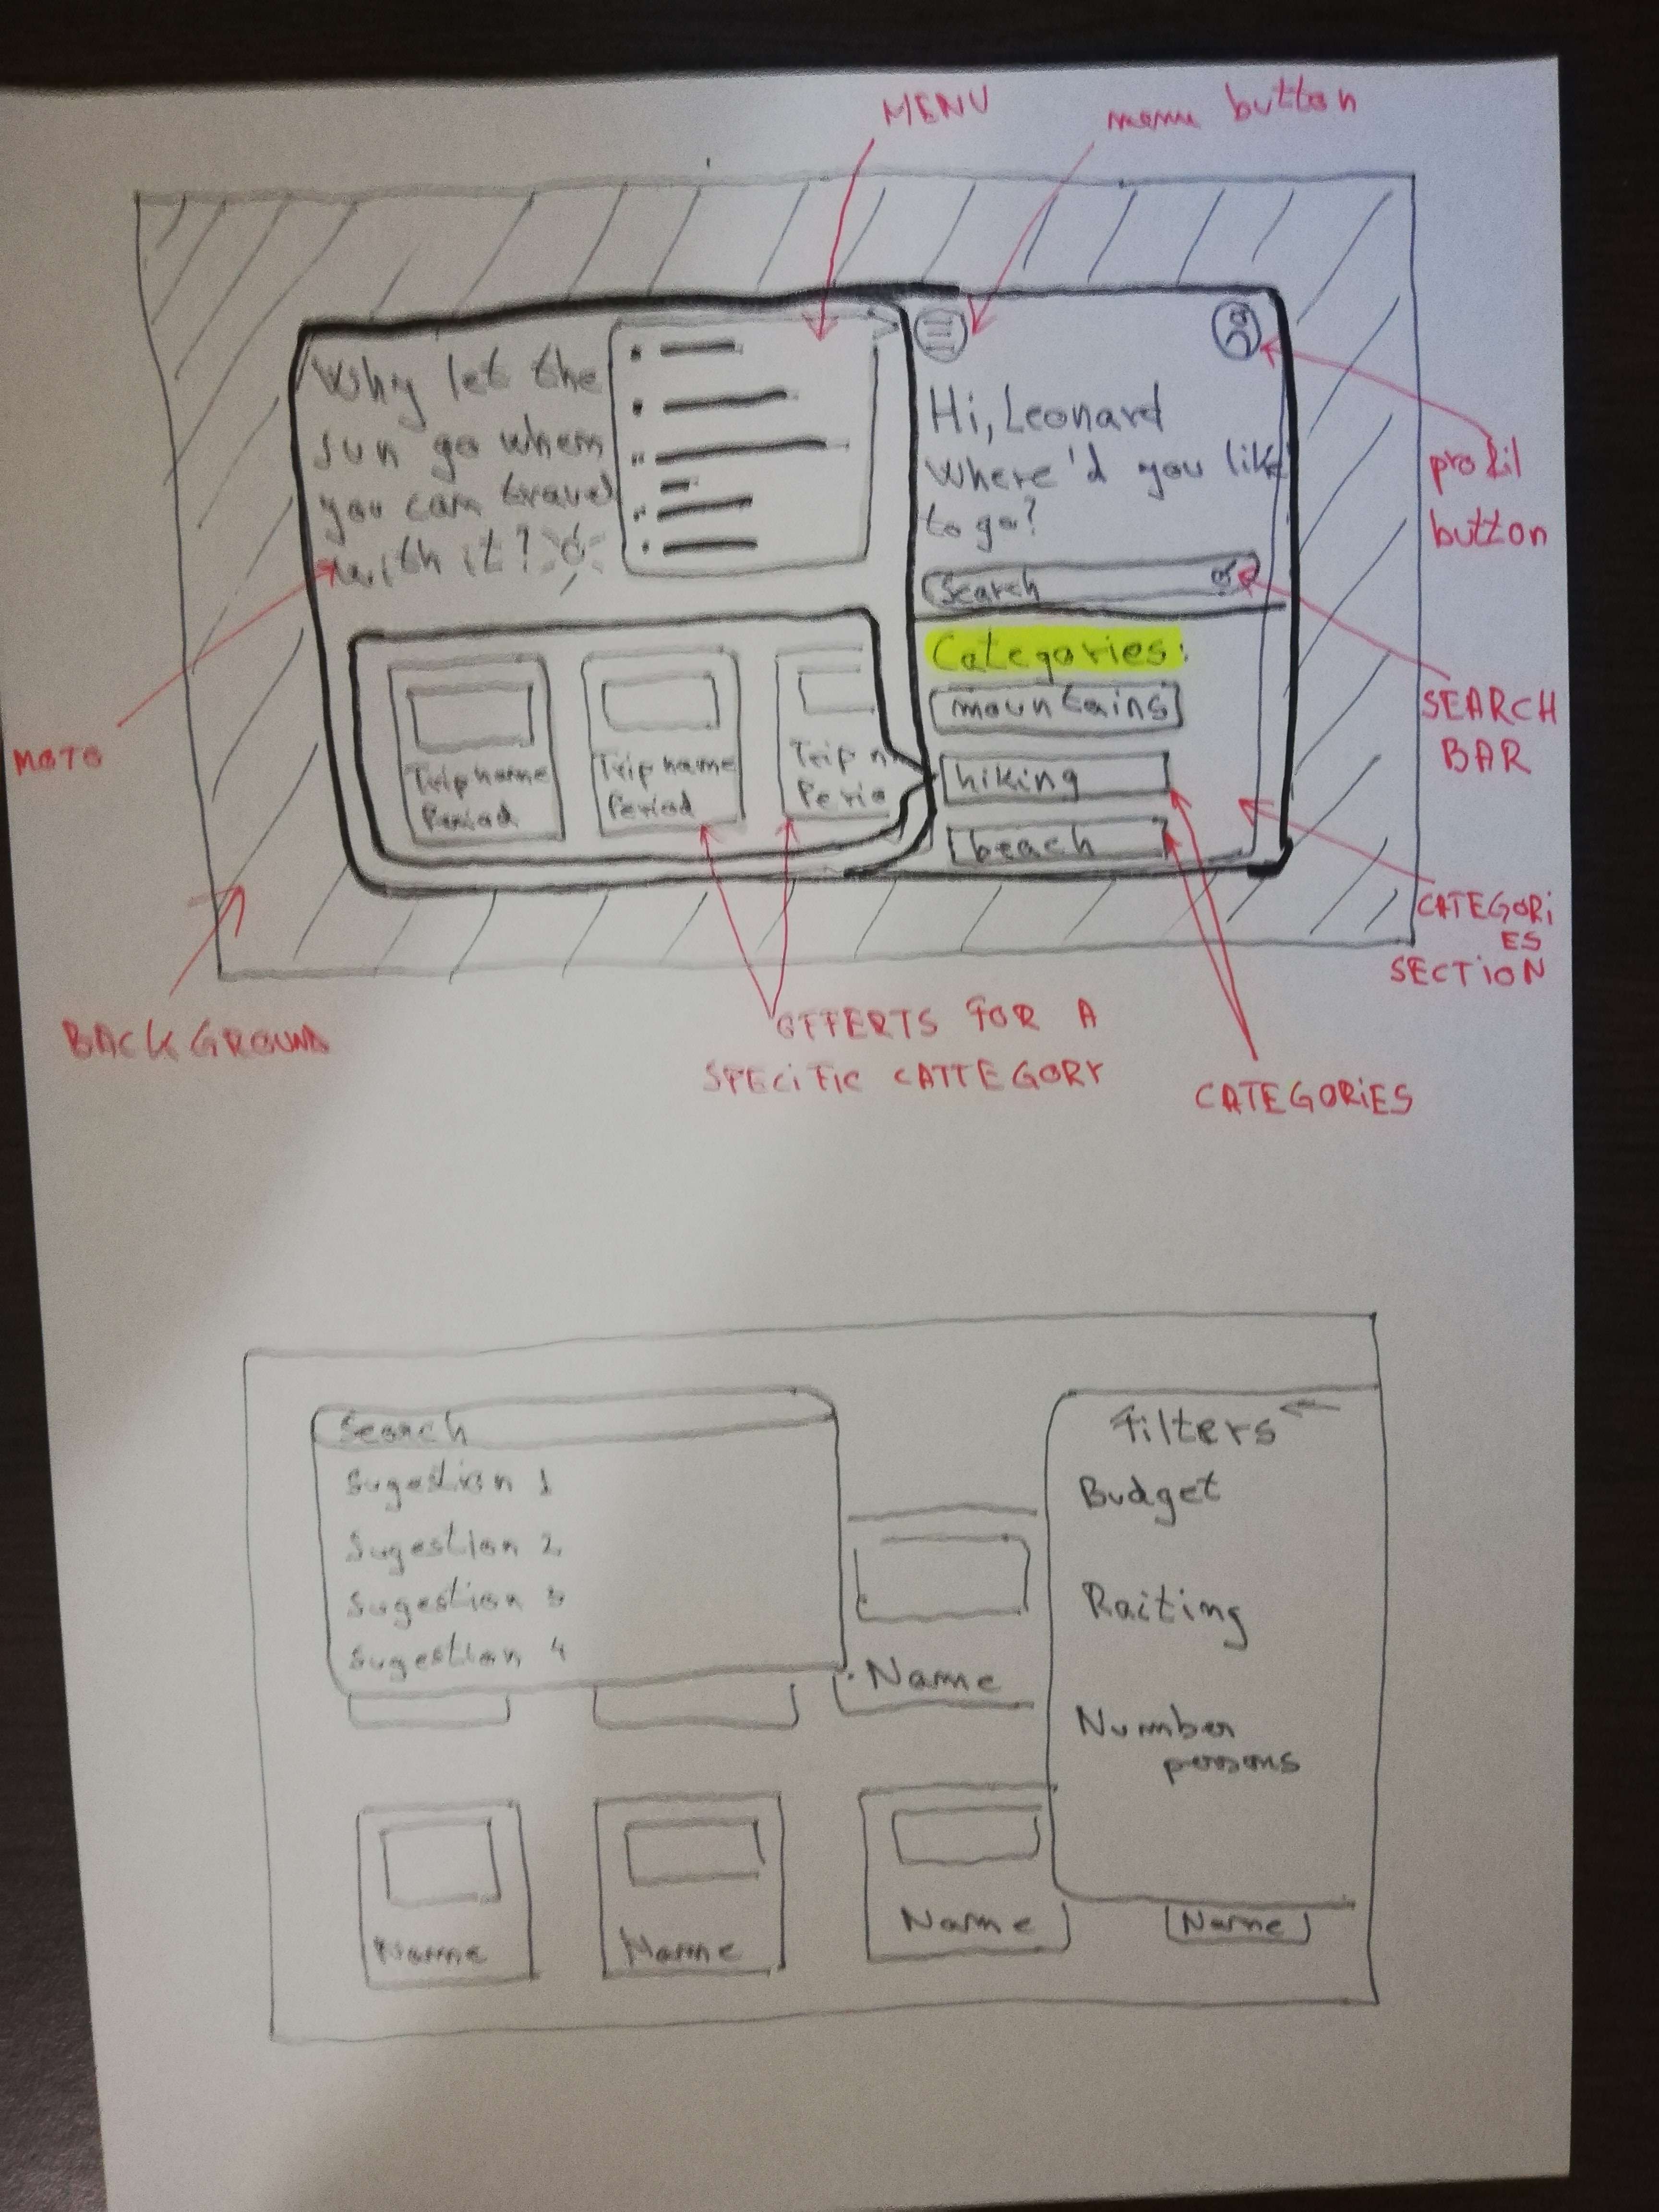 MENU
menu button
Why let the
sun go when
you can travel
with it?
Hi, Leonard
Where'd you like
to go?
Search
profil
button
Categories:
mountains
hiking
beach
SEARCH
BAR
MOTO
Trip name
Period
Trip name
Period
Trip n
Perio
CATEGORI
ES
SECTION
BACKGROUND
OFFERTS FOR A
SPECIFIC CATTEGORY
CATEGORIES
Search
Sugestion 1
Sugestion 2
Sugestion 3
Sugestion 4
Filters
Budget
Raiting
Number
persons
Name
Name
Name
Name
Name